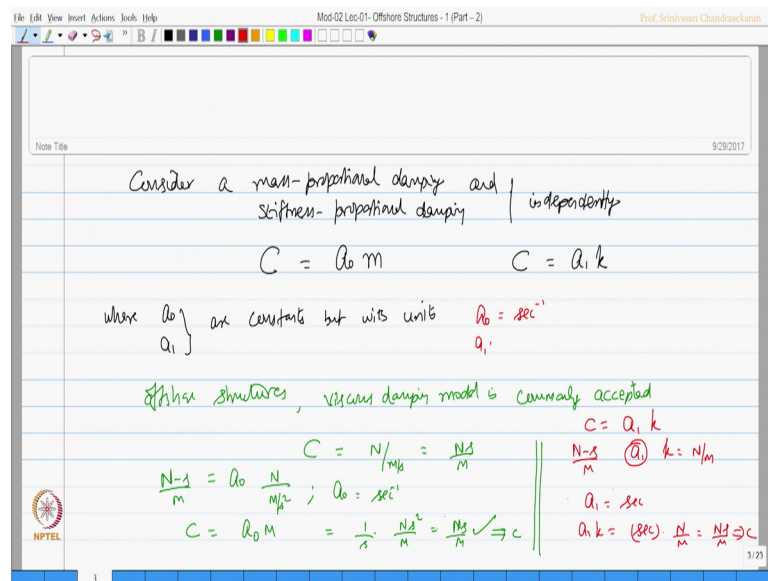 File Edit View Insert Actions Tools Help
Mod-02 Lec-01- Offshore Structures - 1 (Part – 2)
Prof. Srinivasan Chandrasekaran
B I
Note Title
9/29/2017
Consider a mass-proportional damping and
stiffness-proportional damping | independently
C = a₀ m C = a₁ k
where a₀ } are constants but with units a₀ = sec⁻¹
a₁ } a₁.
offshore structures, viscous damping model is commonly accepted
C = a₁ k
C = N/m/s = Ns/m
N-s/m a₁ k = N/m
N-s/m = a₀ N/m/s² ; a₀ = sec⁻¹
a₁ = sec
C = a₀ M = 1/s . Ns²/m = Ns/m ✓ ⇒ c
a₁ k = (sec). N/m = Ns/m ⇒ C
NPTEL
3/23
3